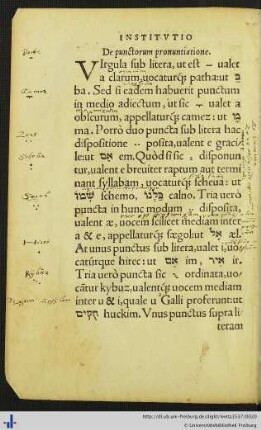 INSTITVTIO
De punctorum pronuntiatione.
VIrgula sub litera, ut est – ualet
a clarum, uocaturq; patha: ut
ba. Sed si eadem habuerit punctum
in medio adiectum, ut sic ualet a
obscurum, appellaturq; camez: ut
ma. Porrò duo puncta sub litera hac
dispositione .. posita, ualent e gracile: ut אם em. Quòd si sic : disponuntur, ualent e breuiter raptum aut termi
nant syllabam, uocaturq; scheua: ut
שמו schemo, calno. Tria uerò
puncta in hunc modum disposita,
ualent æ, uocem scilicet mediam inter
a & e, appellaturq; sægol: ut אל æl.
At unus punctus sub litera, ualet i, uocaturque hirec: ut אם im, איר ir.
Tria uerò puncta sic ordinata, uocãtur kybuz, ualentq; uocem mediam
inter u & i, quale u Galli proferunt: ut
חקים huckim. Vnus punctus supra li
teram
Camez
Zere
Scheua
Sægol
Hirec
Kybuz
http://dl.ub.uni-freiburg.de/diglit/
© Universitätsbibliothek Freiburg